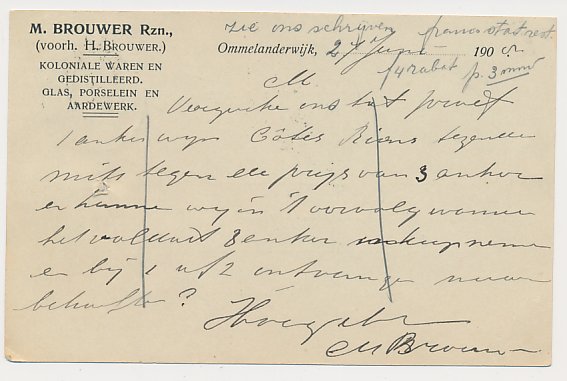 M. BROUWER Rzn.,
(voorh. H. BROUWER.)
KOLONIALE WAREN EN
GEDISTILLEERD.
GLAS, PORSELEIN EN
AARDEWERK.
zie ons schrijven franco stat. rest.
Ommelanderwijk, 27 Juni 190
f 4 rabat p. 3 mnd
M
ons tot proef
1 anker wijn Côtes
mits tegen de prijs van 3 anker
en kunnen wij in 't vervolg
het 3 anker
en bij 1 of 2 ontvangen naar
behoefte?
Hoogach
M Brouwer